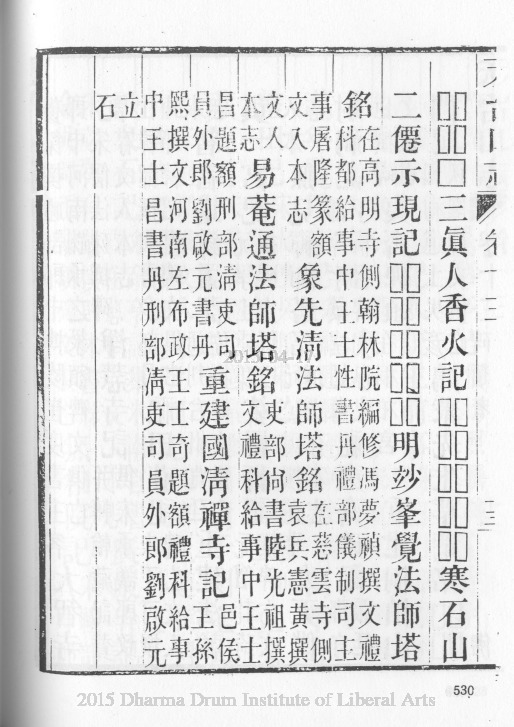 □□□□□三眞人香火記□□□□□□□□寒石山
二僊示現記□□□□□□□□明玅峯覺法師塔
銘在高明寺側翰林院編修馮夢禎撰文禮
科都給事中王士性書丹禮部儀制司主
事屠隆篆額文入本志象先清法師塔銘在慈雲寺側袁兵憲黃撰
文人本志易菴通法師塔銘吏部尙書陸光祖撰文禮科給事中王士
昌題額刑部清吏司員外郎劉啟元書丹重建國清禪寺記邑侯王孫
熙撰文河南左布政王士奇題額禮科給事
中王士昌書丹刑部清吏司員外郎劉啟元
立石
530
2015 Dharma Drum Institute of Liberal Arts